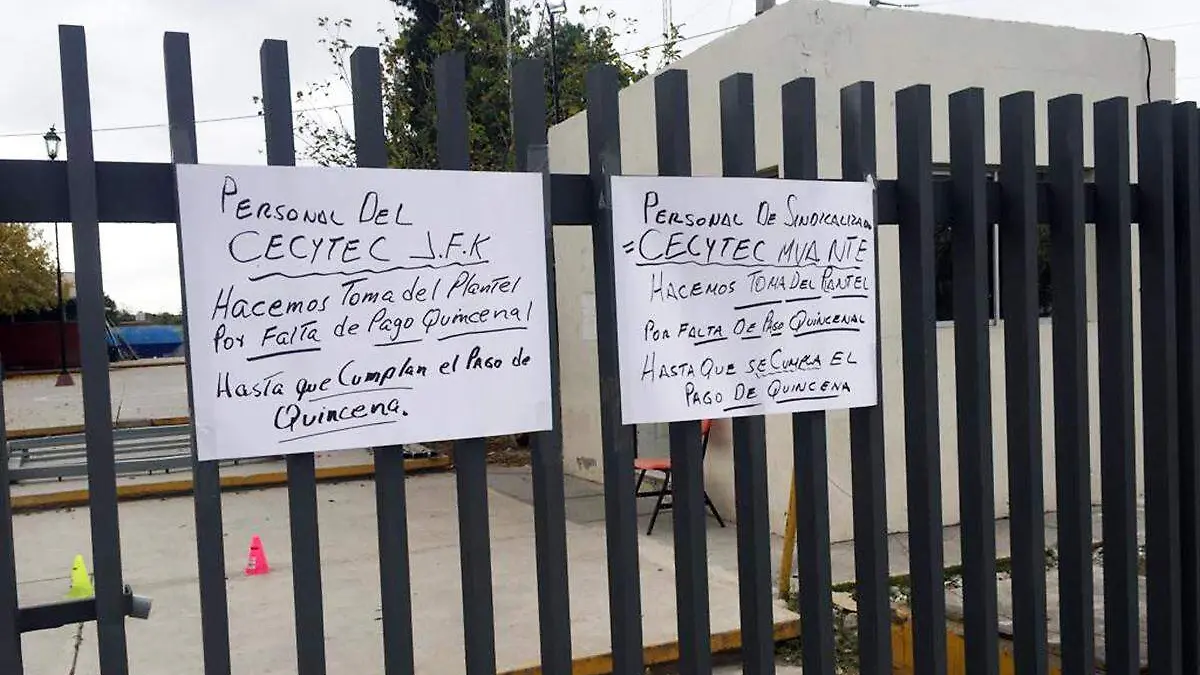 PERSONAL DEL
CECYTEC J.F.K
Hacemos Toma del Plantel
Por Falta de Pago Quincenal
Hasta que Cumplan el Pago de
Quincena.
PERSONAL DE SINDICALIZADO
=CECYTEC MVANTE
HACEMOS TOMA DEL PLANTEL
POR FALTA DE PAGO QUINCENAL
HASTA QUE SE CUMPLA EL
PAGO DE QUINCENA